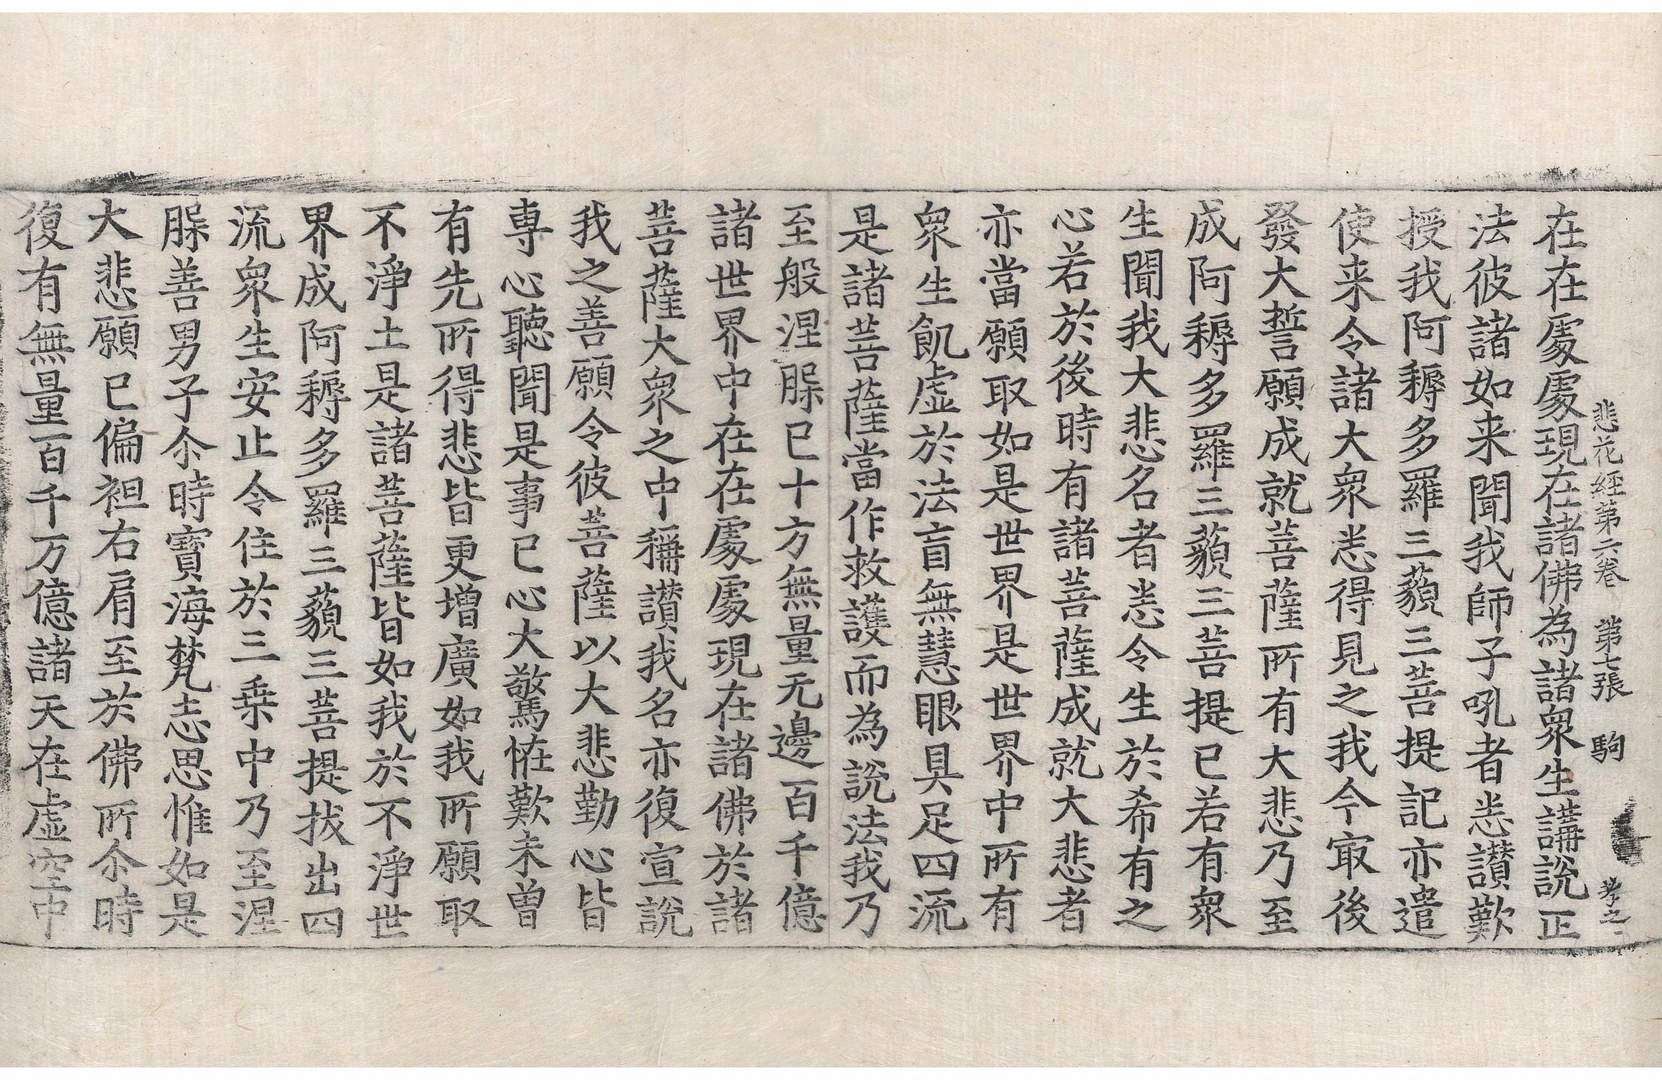 悲花経第六卷　第七張　駒　孝之
在在處處現在諸佛為諸衆生講說正
法彼諸如来聞我師子吼者悉讃歎
授我阿耨多羅三藐三菩提記亦遣
使来令諸大衆悉得見之我今㝡後
發大誓願成就菩薩所有大悲乃至
成阿耨多羅三藐三菩提已若有衆
生聞我大悲名者悉令生於希有之
心若於後時有諸菩薩成就大悲者
亦當願取如是世界是世界中所有
衆生飢虛於法盲無慧眼具足四流
是諸菩薩當作救護而為說法我乃
至般涅槃已十方無量无邊百千億
諸世界中在在處處現在諸佛於諸
菩薩大衆之中稱讃我名亦復宣說
我之善願令彼菩薩以大悲勤心皆
專心聽聞是事已心大驚恠歎未曾
有先所得悲皆更增廣如我所願取
不淨土是諸菩薩皆如我於不淨世
界成阿耨多羅三藐三菩提拔出四
流衆生安止令住於三乗中乃至涅
槃善男子尒時寶海梵志思惟如是
大悲願已偏袒右肩至於佛所尒時
復有無量百千万億諸天在虛空中